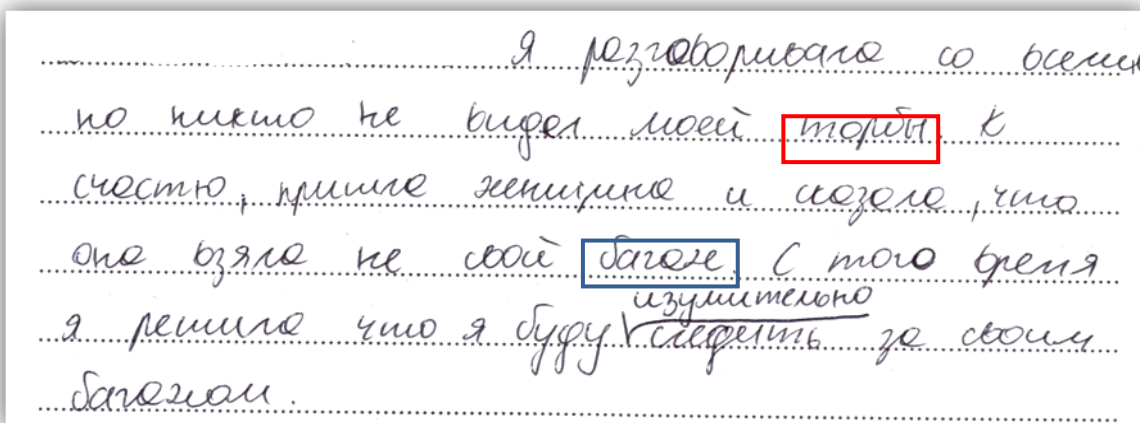 Я разговаривала со всеми
но никто не видел моей торбы. К
счастю, пришла женщина и сказала, что
она взяла не свой багаж. С того время
изумительно
я решила что я буду следить за своим
багажом.